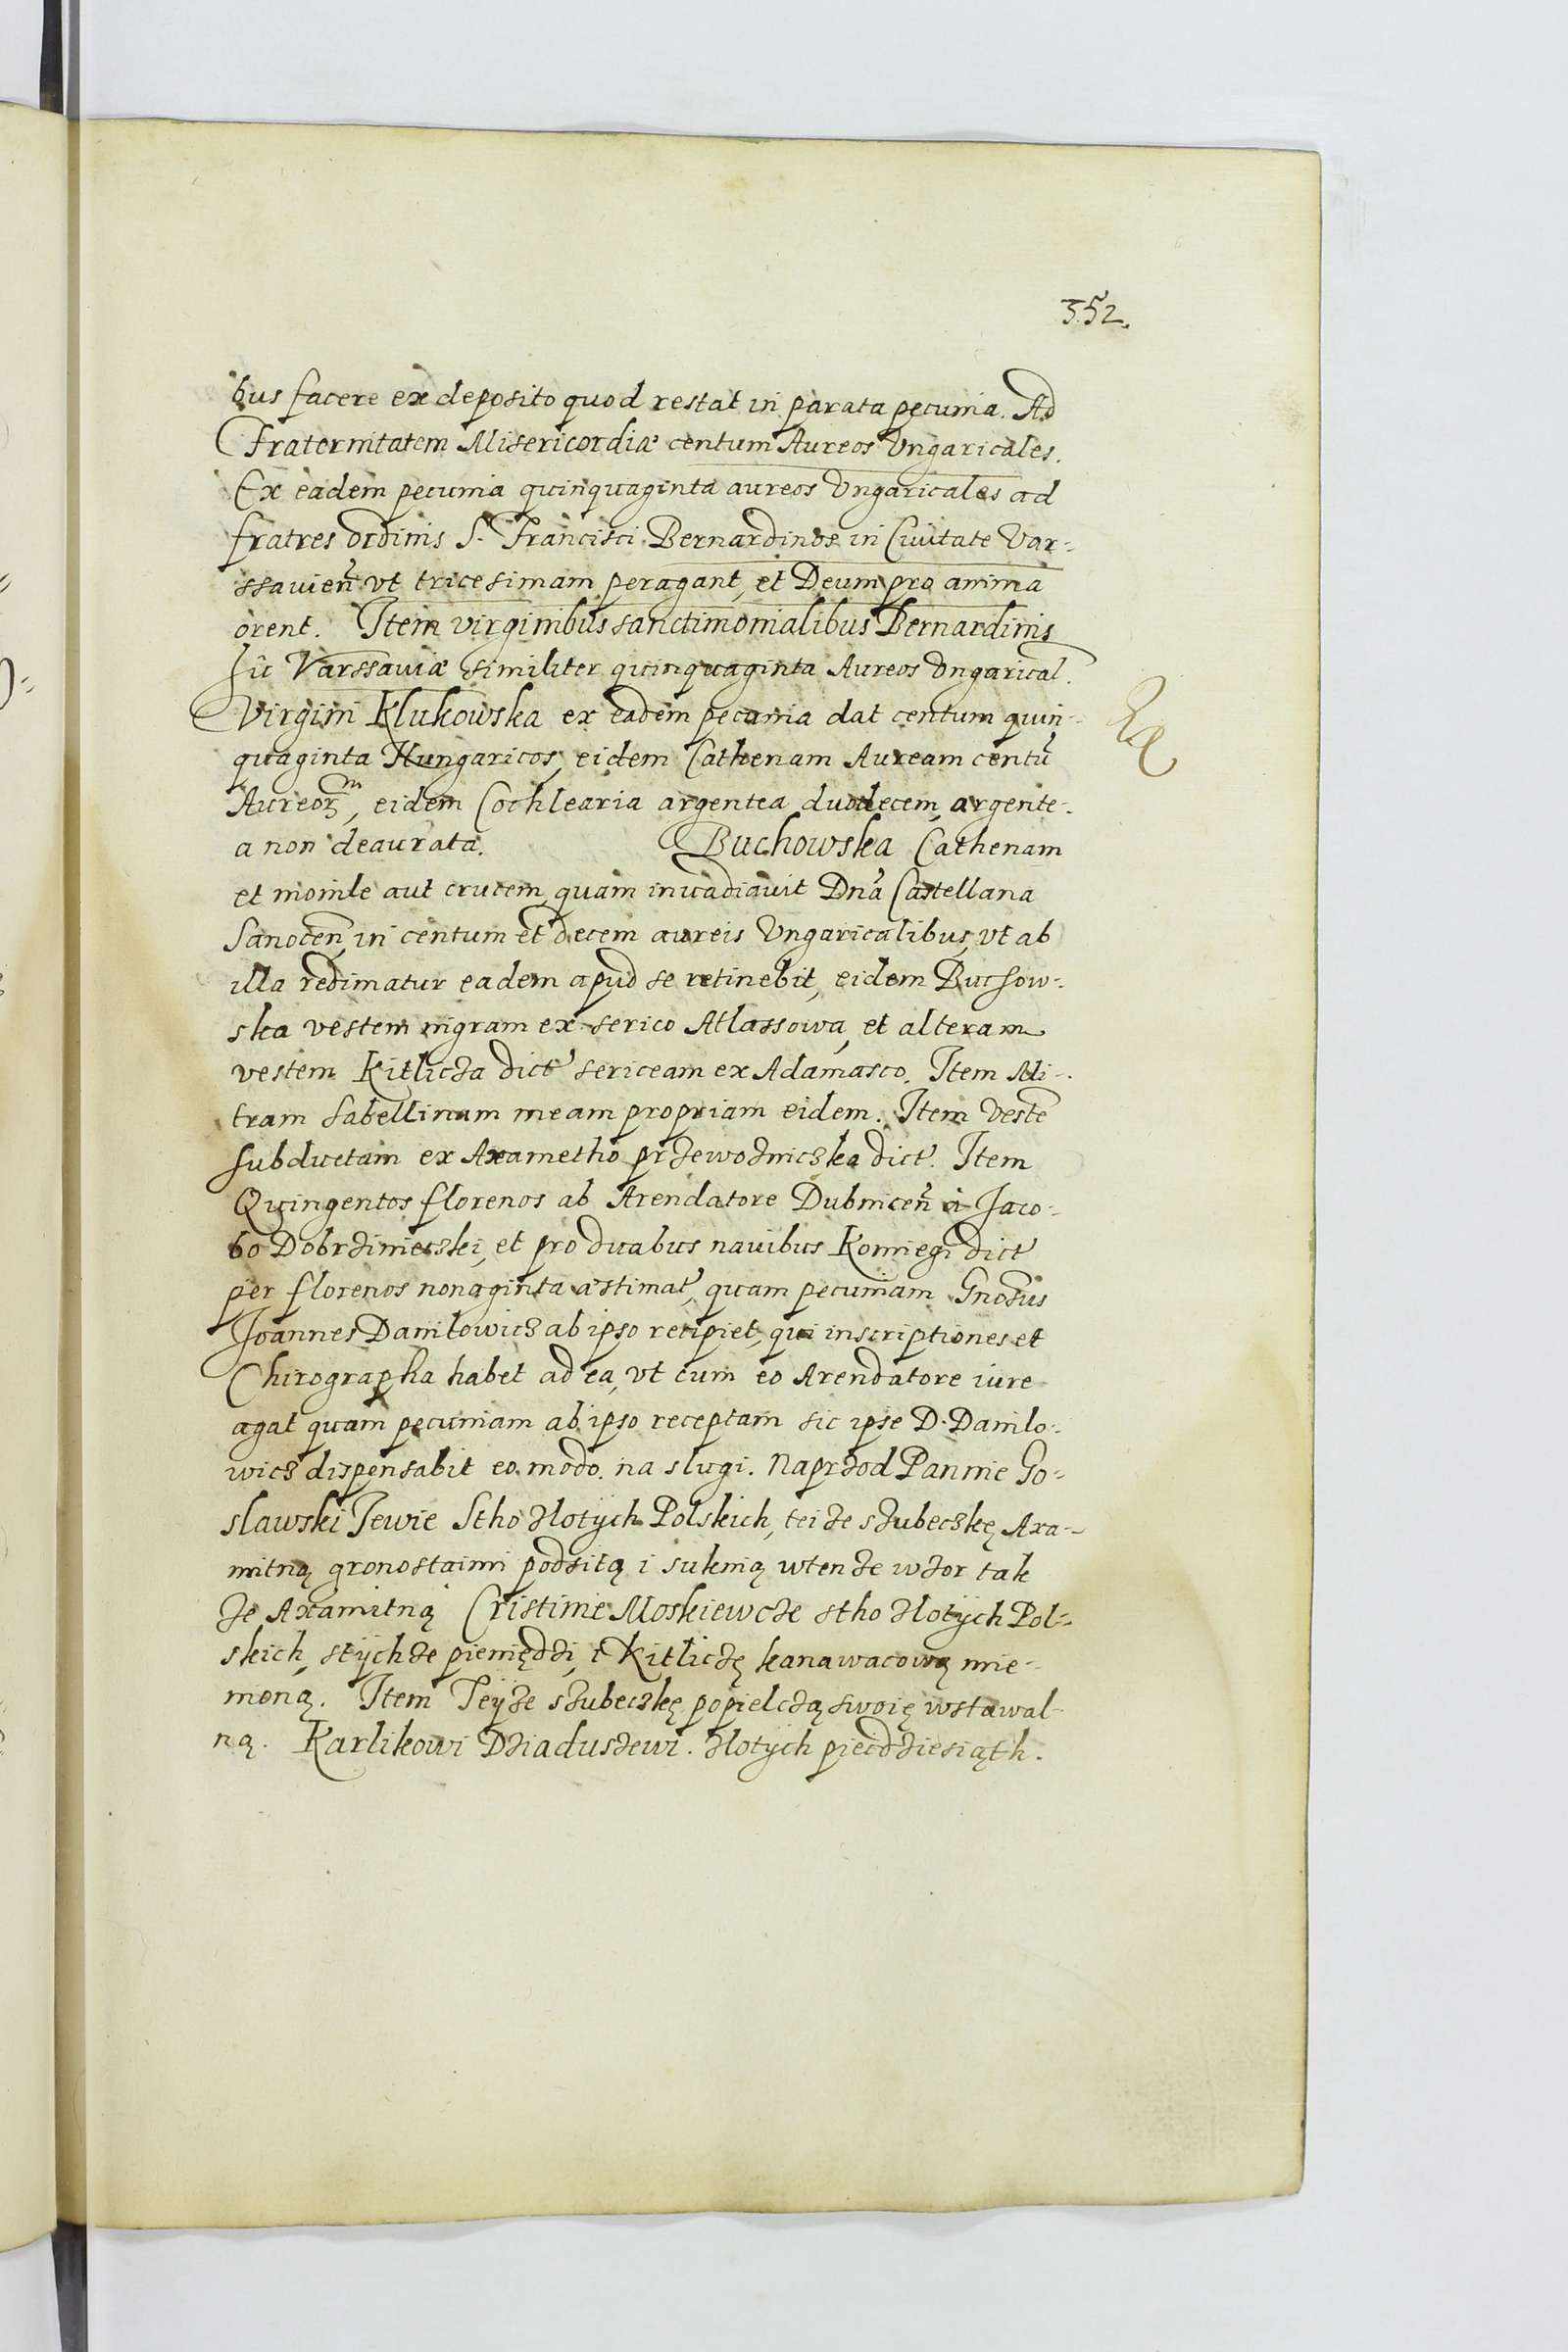 352.
bus facere ex deposito quod restat in parata pecunia. Ad
Fraternitatem Misericordiæ centum Aureos Ungaricales.
Ex eadem pecunia quinquaginta aureos Ungaricales ad
fratres ordinis S. Francisci Bernardinos in Civitate Var-
ssavien̄ vt tricesimam peragant, et Deum pro anima
orent. Item virginibus sanctimonialibus Bernardinis
hîc Varssaviæ similiter quinquaginta Aureos Ungarical.
Virgini Klukowska ex eadem pecunia dat centum quin-
quaginta Hungaricos, eidem Cathenam Auream centū
Aureorm, eidem Cochlearia argentea duodecem, argente-
a non deaurata. Buchowska Cathenam
et monile aut crucem, quam invadiavit Dnā Castellana
Sanocen̄, in centum et decem aureis Ungaricalibus, vt ab
illa redimatur eadem apud se retinebit, eidem Buchow-
ska vestem nigram ex serico Atlassową, et alteram
vestem Kitlicza dict' sericeam ex Adamasco. Item Mi-
tram sabellinam meam propriam eidem. Item Vestē
subductam ex Axametho przewozniczka dict. Item
Quingentos florenos ab Arendatore Dubnicen̄ à Jaco-
bo Dobrziniecski, et pro duabus navibus Komiegi dict'
per florenos nonaginta æstimat', quam pecuniam Gnōsus
Joannes Daniłowicz ab ipso recipiet, qui inscriptiones et
Chirographa habet ad ea, vt cum eo Arendatore iure
agat quam pecuniam ab ipso receptam sic ipse D. Danilo-
wicz dispensabit eo modo. na slugi. Naprzod Pannie Go-
slawski Jewie Stho zlotych Polskich, tei ze szubeczkę Axa-
mitną gronostaimi podsitą i suknią wtenze wzor tak
ze Axamitną Cristinie Moskiewcze stho zlotÿch Pol-
skich, stÿchze pieniędzi, i Kitliczę kanawacową mie-
nioną. Item Teÿze szubeczkę popielczą swoię wstawal-
ną. Karlikowi Dziaduszewi. zlotÿch piecdziesiąth.